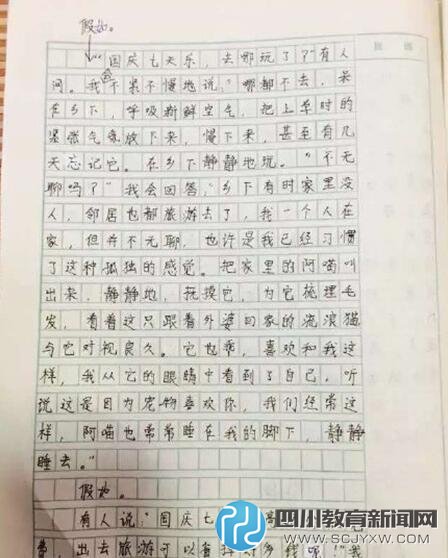 假如。
"国庆七天乐,去哪玩了?"有人
问。我会不紧不慢地说,"哪都不去,呆
在乡下,呼吸新鲜空气,把上学时的
紧张气氛放下来,慢下来,甚至有几
天忘记它。在乡下静静地玩。""不无
聊吗?"我会回答,"乡下有时家里没
人,邻居也都旅游去了,我一个人在
家,但并不无聊,也许是我已经习惯
了这种孤独的感觉。把家里的阿喵叫
出来,静静地,抚摸它,为它梳理毛
发,看着这只跟着外婆回家的流浪猫
与它对视良久。它也乖,喜欢和我这
样,我从它的眼睛中看到了自己,听
说这是因为宠物喜欢你,我们经常这
样,阿喵也常常睡在我的脚下,静静
睡去。"
假如。
有人说,"国庆七
费,出去旅游可以省掉好多钱呢!"我
四川教育新闻网
WWW.SCJYXW.COM